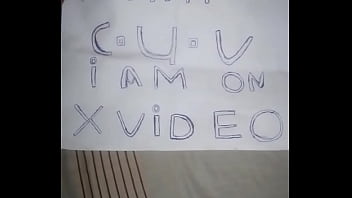 C.U.V
i AM ON
XViDEO